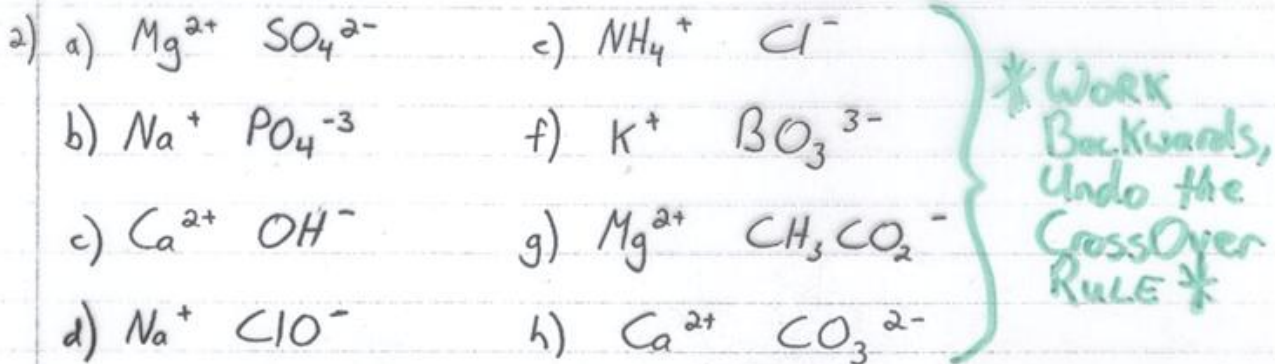 2) a) Mg²⁺ SO₄²⁻
b) Na⁺ PO₄⁻³
c) Ca²⁺ OH⁻
d) Na⁺ ClO⁻
e) NH₄⁺ Cl⁻
f) K⁺ BO₃³⁻
g) Mg²⁺ CH₃CO₂⁻
h) Ca²⁺ CO₃²⁻
* WORK
Backwards,
Undo the
CrossOver
RULE *